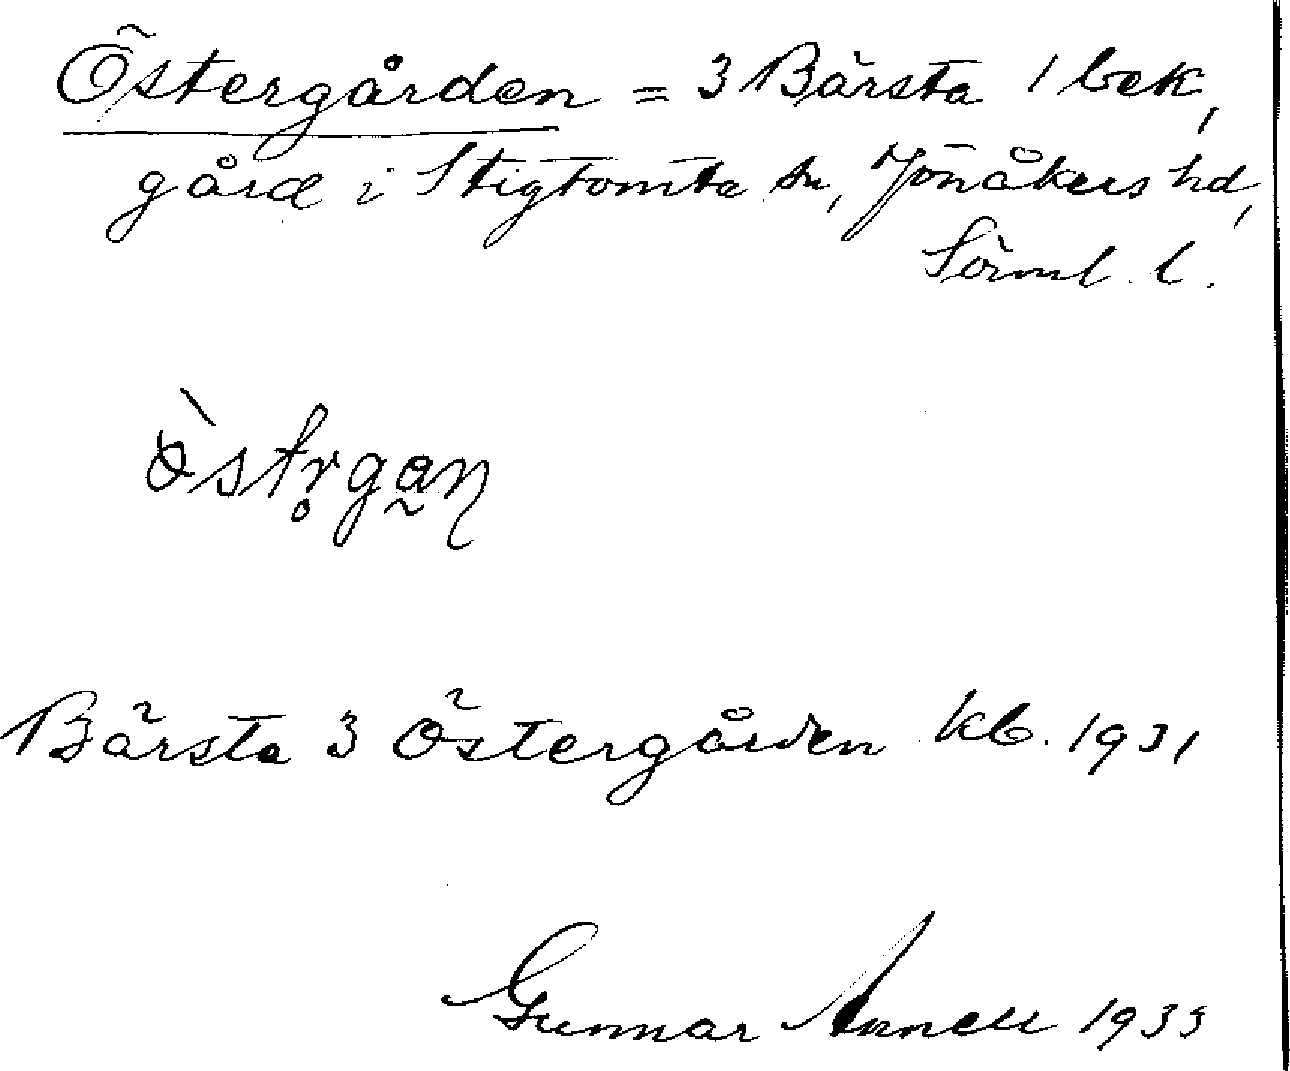 Östergården = 3 Bärsta 1 bek,
gård i Stigtomta sn, Jönåkers hd,
Sörml. l.
östr̥ga̰ɳ
Bärsta 3 Östergården kb. 1931
Gunnar Annell 1933